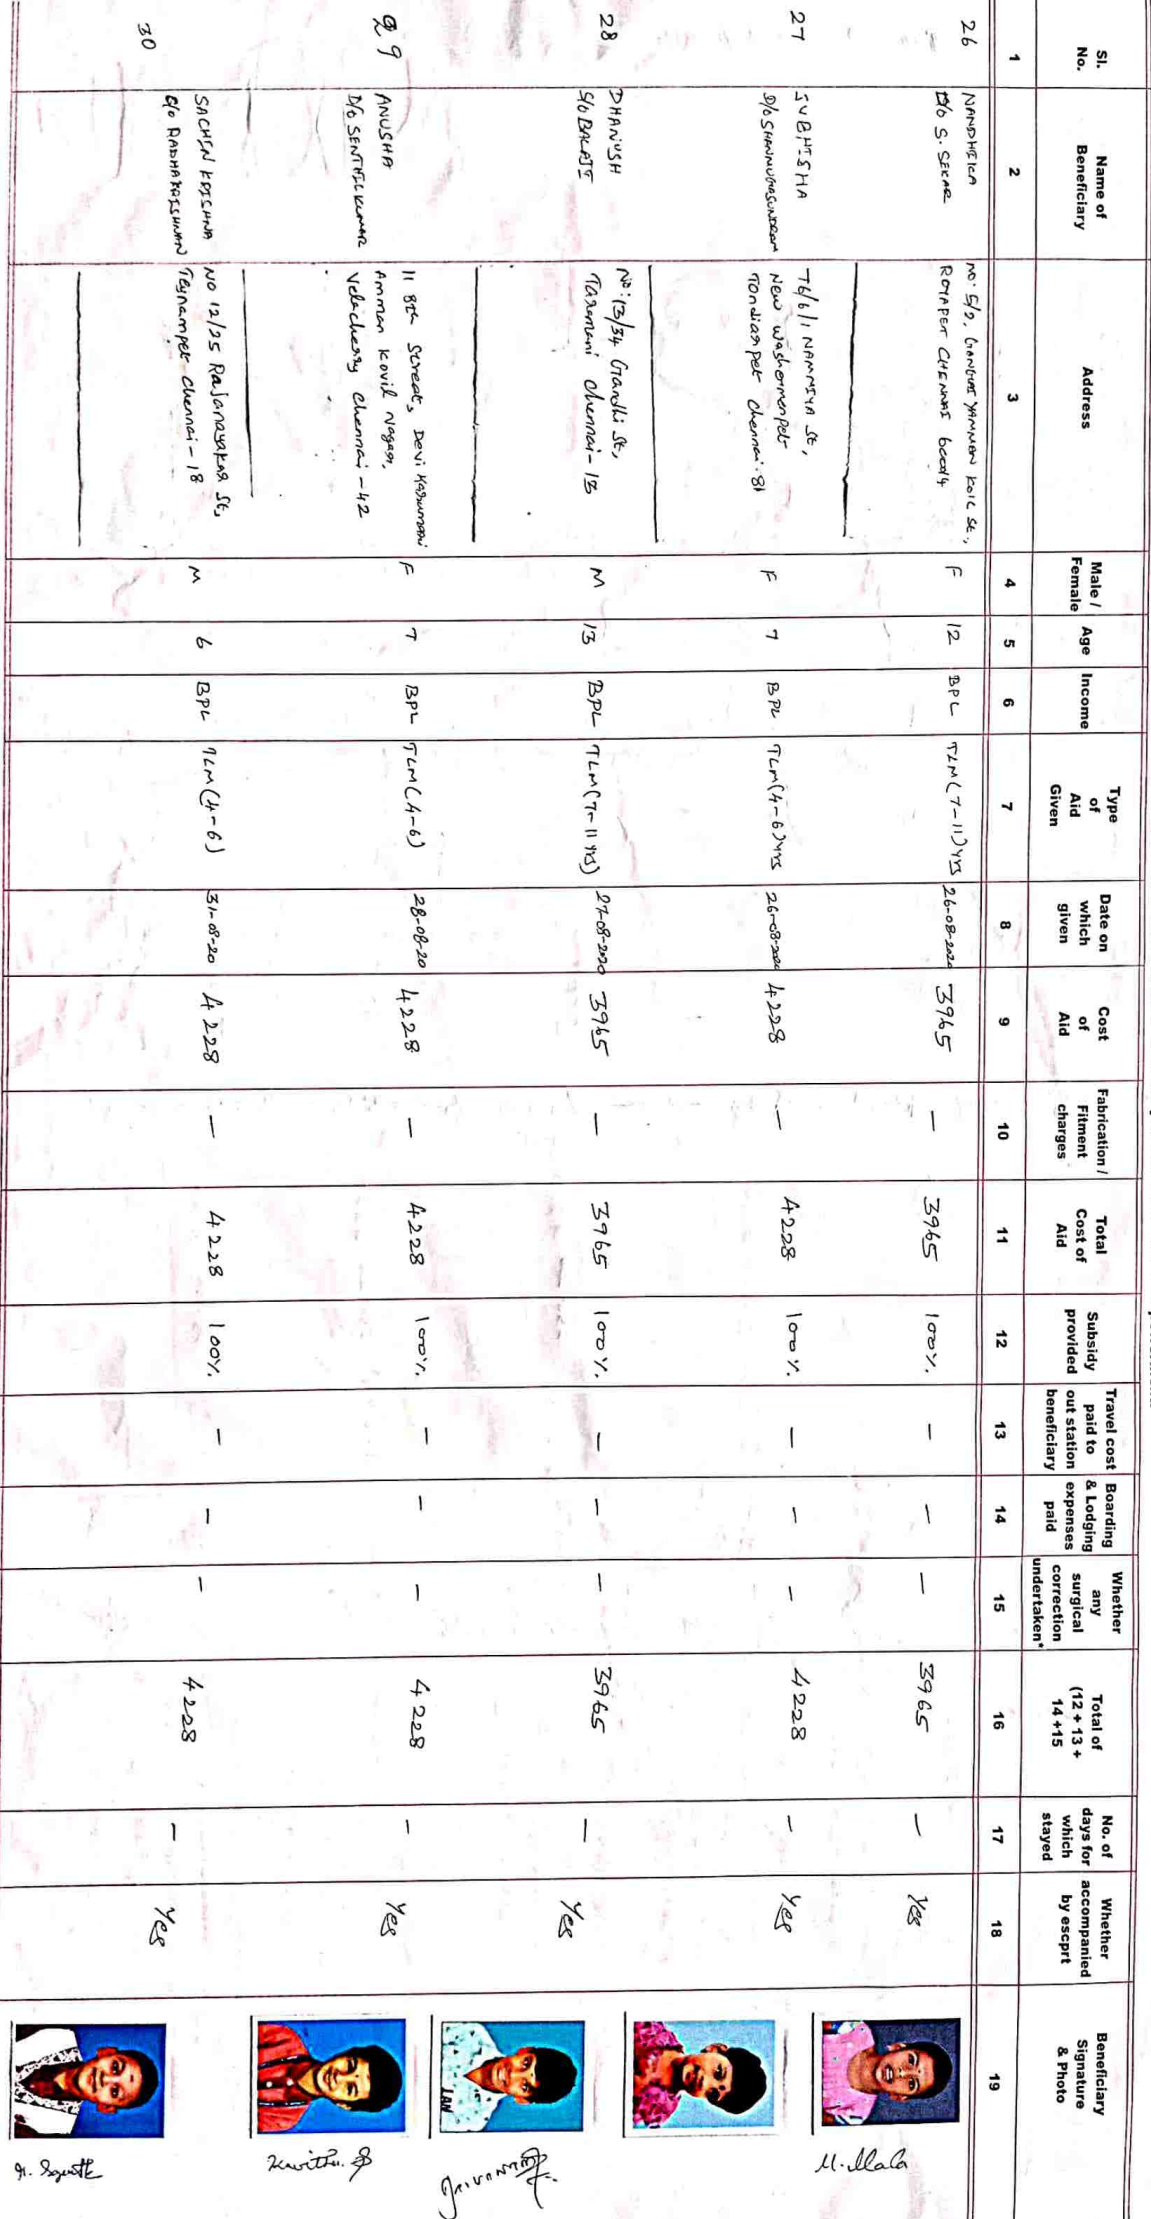 Sl. No.
Name of Beneficiary
Address
Male / Female
Age
Income
Type of Aid Given
Date on which given
Cost of Aid
Fabrication / Fitment charges
Total Cost of Aid
Subsidy provided
Travel cost paid to out station beneficiary
Boarding & Lodging expenses paid
Whether any surgical correction undertaken*
Total of (12 + 13 + 14 +15
No. of days for which stayed
Whether accompanied by escprt
Beneficiary Signature & Photo
1 2 3 4 5 6 7 8 9 10 11 12 13 14 15 16 17 18 19
26
NANDHIKA
D/o S. SEKAR
NO: 5/2, GANGAI YAMMAN KOIL St.,
ROYAPET CHENNAI 600014
F 12 BPL TLM (7-11) yrs 26-08-2020 3965 — 3965 100%. — — — 3965 — Yes
M. Mala
27
SUBHISHA
D/o SHANMUGASUNDRAM
76/6/1 NAMMIYA St,
New washermenpet
Tondiarpet chennai-81
F 7 BPL TLM(4-6)yrs 26-08-2020 4228 — 4228 100%. — — — 4228 — Yes
28
DHANUSH
S/o BALAJI
No:13/34 Gandhi St,
Taramani chennai-13
M 13 BPL TLM(7-11 yrs) 27-08-2020 3965 — 3965 100%. — — — 3965 — Yes
29
ANUSHA
D/o SENTHIL KUMAR
11 8th Street, Devi Karumari
Amman Kovil Nagar,
Velachery chennai-42
F 7 BPL TLM(4-6) 28-08-20 4228 — 4228 100%. — — — 4228 — Yes
Kavitha. S
30
SACHIN KRISHNA
RADHAKRISHNAN
NO 12/25 Rajanayakar St,
Teynampet chennai-18
M 6 BPL TLM(4-6) 31-08-20 4228 — 4228 100%. — — — 4228 — Yes